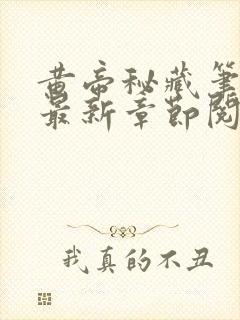 黄帝秘藏笔
最新章节阅
我真的不丑